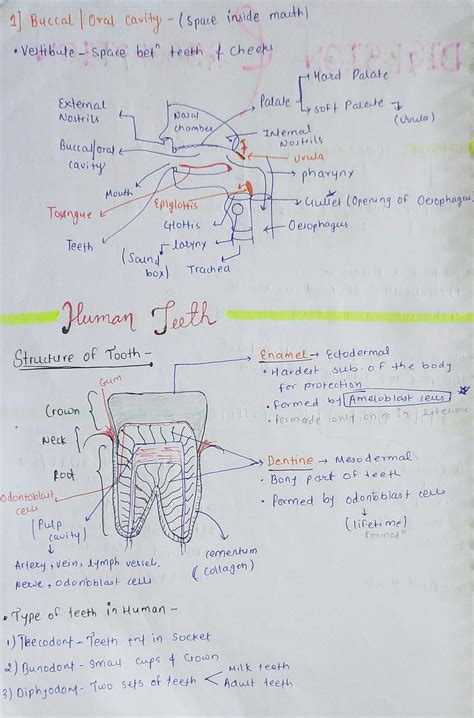 1] Buccal / Oral cavity - (space inside mouth)
• Vestibule - space betⁿ teeth & cheeks
Palate
Hard Palate
Soft Palate
(Uvula)
External Nostrils
Nasal chamber
Internal Nostrils
Uvula
Buccal/oral cavity
pharynx
Mouth
Epiglottis
Gullet (Opening of Oesophagus)
Toungue
Glottis
Oesophagus
Teeth
larynx
(Sound box)
Trachea
Human Teeth
Structure of Tooth -
Gum
Crown
Neck
Root
odontoblast cells
(Pulp cavity)
Artery, vein, lymph vessel,
Nerve, odonoblast cells
cementum
(collagen)
Enamel → Ectodermal
• Hardest sub. of the body
for protection
• formed by Ameloblast cells
• formade only once in lifetime
Dentine → Mesodermal
• Bony part of teeth
• formed by odontoblast cells
(lifetime)
formatⁿ
• Type of teeth in Human -
1) Thecodont - Teeth fit in Socket
2) Bunodont - Small cups & Crown
3) Diphyodont - Two sets of teeth
Milk teeth
Adult teeth